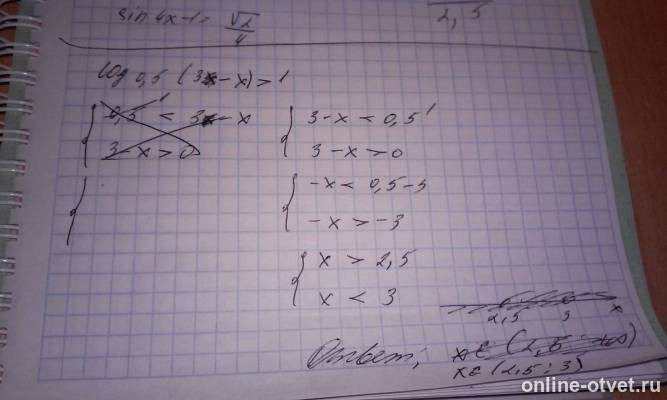 sin 4x-1 = √2/4
2,5
log 0,5 (3-x) > 1
0,5¹ < 3-x
3-x > 0
3-x < 0,5¹
3-x > 0
-x < 0,5-3
-x > -3
x > 2,5
x < 3
2,5 3 x
Ответ; x∈ (2,5 ; +∞)
x∈ (2,5 ; 3)
online-otvet.ru